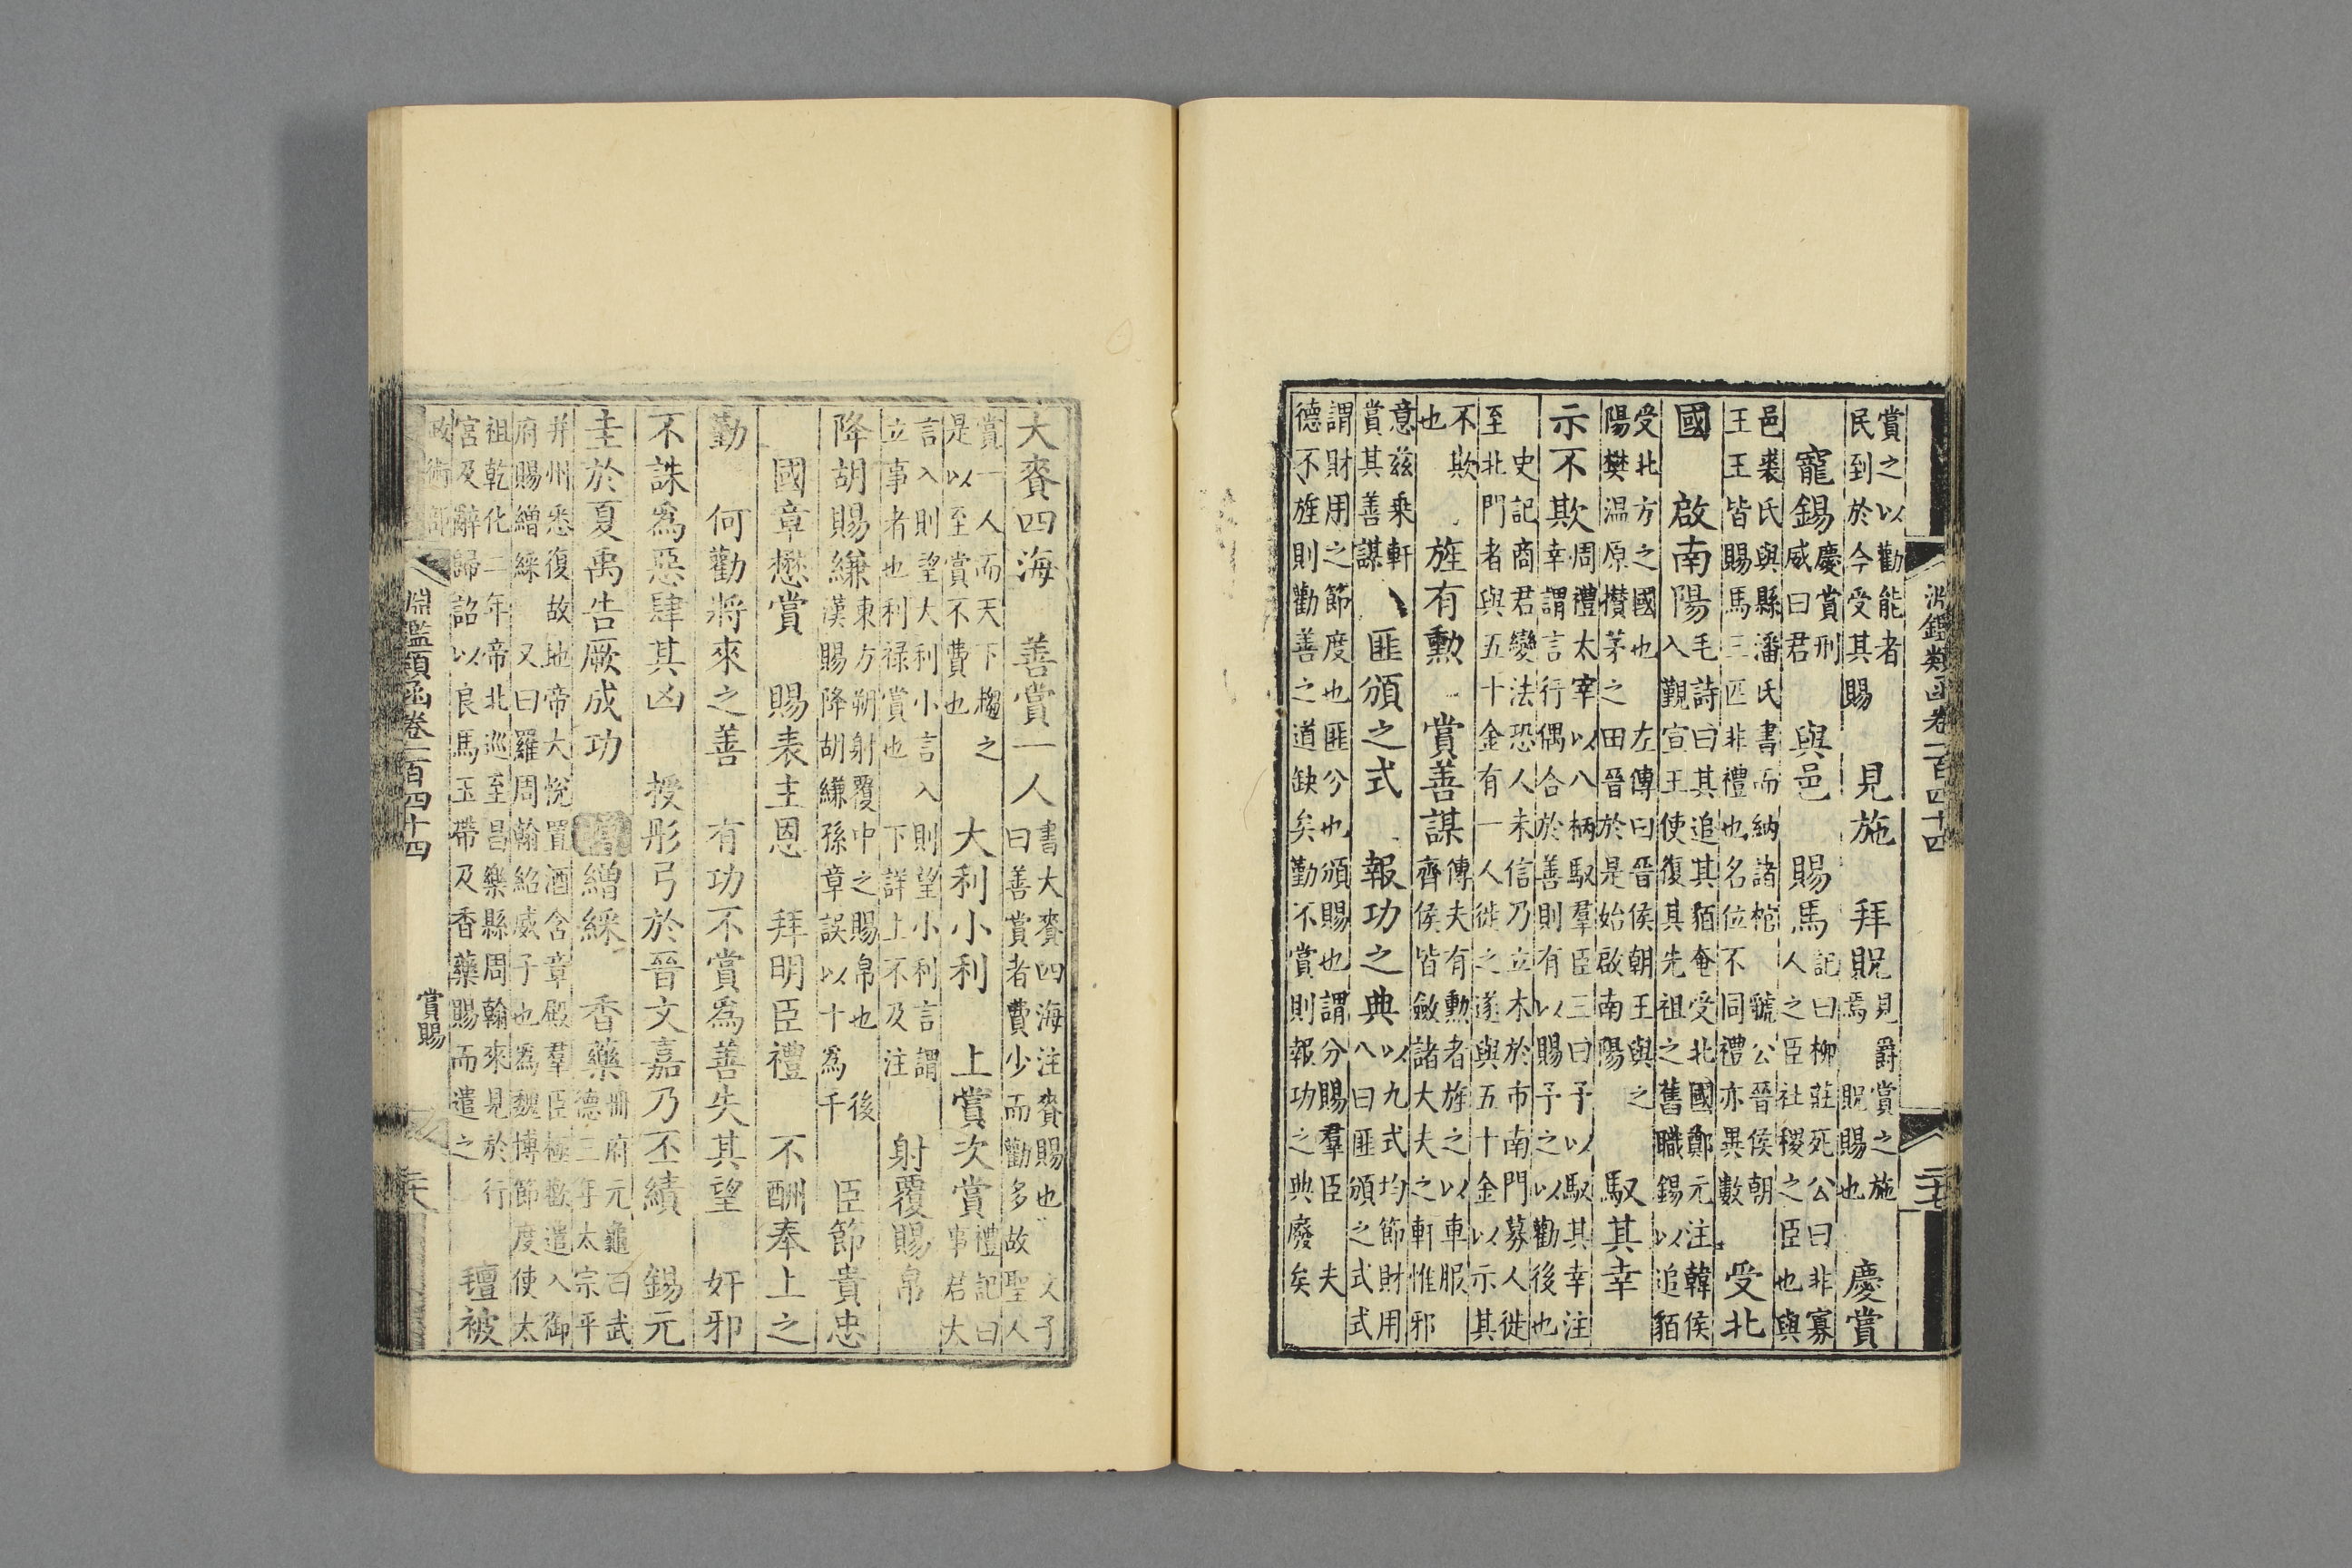 淵鑑類函卷一百四十四 二十七
賞之以勸能者
民到於今受其賜
見施 拜貺
見爵賞之施
焉 貺賜也
慶賞
寵錫
慶賞刑
威曰君
與邑 賜馬
記曰柳莊死公曰非寡
人之臣社稷之臣也與
邑裘氏與縣潘氏書而納諸棺 虢公晉侯朝
王王皆賜馬三匹非禮也名位不同禮亦異數
受北
國 啟南陽
毛詩曰其追其貊奄受北國鄭元注韓侯
入覲宣王使復其先祖之舊職錫以追貊
受北方之國也 左傳曰晉侯朝王與之
陽樊温原攅茅之田晉於是始啟南陽
馭其幸
示不欺
周禮太宰以八柄馭羣臣三曰予以馭其幸注
幸謂言行偶合於善則有以賜予之以勸後也
史記商君變法恐人未信乃立木於市南門募人徙
至北門者與五十金有一人徙之遂與五十金以示其
不欺
也
旌有勳 賞善謀
傳夫有勳者旌之以車服
齊侯皆斂諸大夫之軒惟邪
意兹乘軒
賞其善謀
匪頒之式 報功之典
以九式均節財用
八曰匪頒之式式
謂財用之節度也匪兮也頒賜也謂分賜羣臣 夫
德不旌則勸善之道缺矣勤不賞則報功之典廢矣
大賚四海 善賞一人
書大賚四海注賚賜也 文子
曰善賞者費少而勸多故聖人
賞一人而天下趨之
是以至賞不費也
大利小利 上賞次賞
禮記曰
事君大
言入則望大利小言入則望小利言謂
立事者也利祿賞也 下詳上不及注
射覆賜帛
降胡賜縑
東方朔射覆中之賜帛也 後
漢賜降胡縑孫章誤以十爲千
臣節貴忠
國章懋賞 賜表主恩 拜明臣禮 不酬奉上之
勤 何勸將來之善 有功不賞爲善失其望 奸邪
不誅爲惡肆其凶 授彤弓於晉文嘉乃丕績 錫元
圭於夏禹告厥成功 增 繒綵 香藥
冊府元龜曰武
德三年太宗平
并州悉復故地帝大悅置酒含章殿羣臣極歡遣入御
府賜繒綵 又曰羅周翰紹威子也爲魏博節度使太
祖乾化二年帝北巡至昌樂縣周翰來見於行
宮及辭歸詔以良馬玉帶及香藥賜而遣之
氊被
政術部
淵鑑類函卷一百四十四 賞賜 二十八